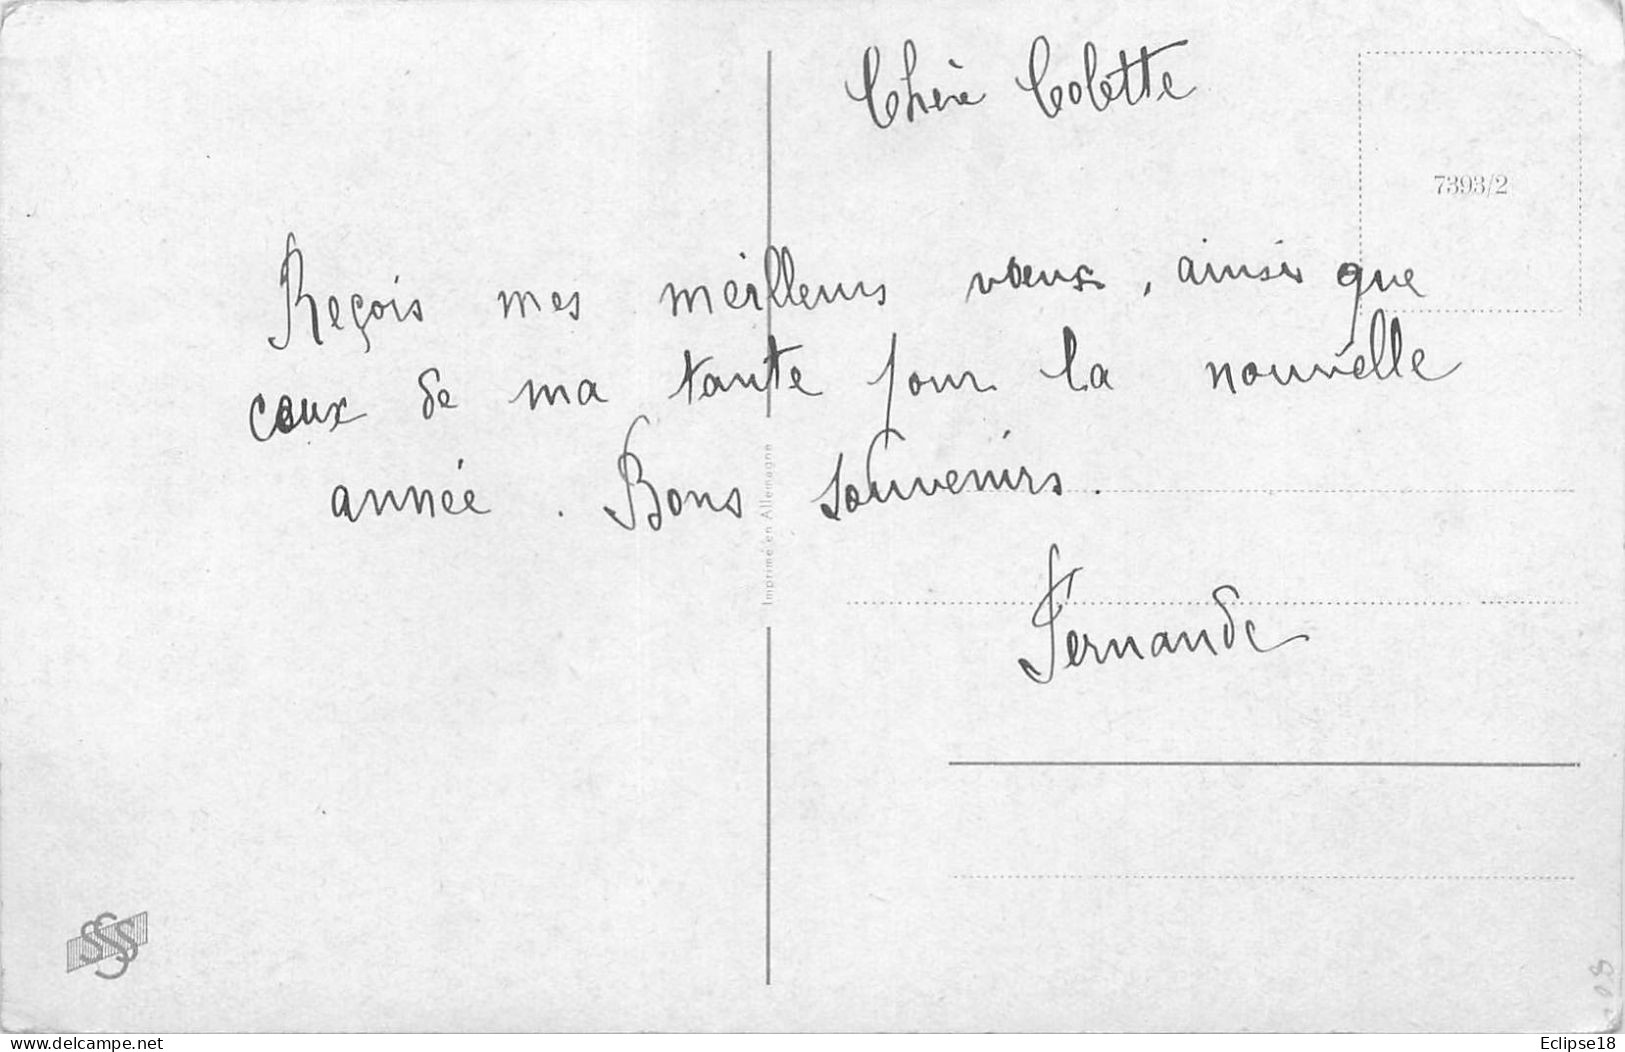 Chère Colette
7393/2
Reçois mes meilleurs vœux, ainsi que
ceux de ma tante pour la nouvelle
année. Bons souvenirs.
Imprimé en Allemagne
Fernande
SSS
delcampe.net
Eclipse18